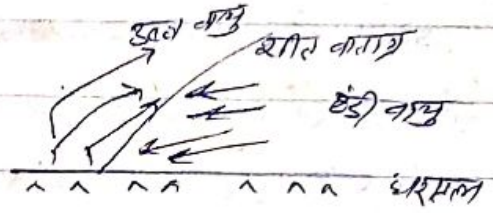 उष्ण वायु
शीत वाताग्र
ठंडी वायु
धरातल